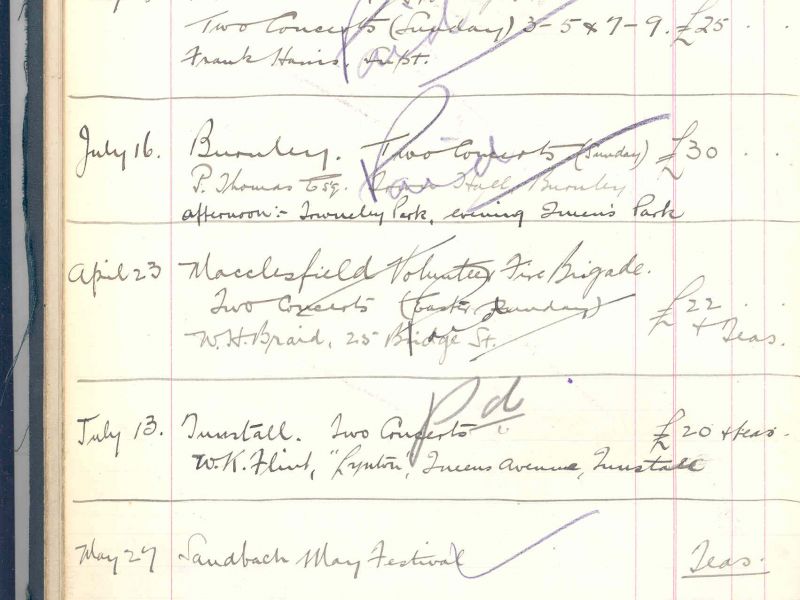 Two Concerts (Sunday) 3-5 & 7-9. £25 . .
Frank Harris, Supt.
Paid
July 16. Burnley. Two Concerts (Sunday) £30 . .
P. Thomas Esq. Town Hall Burnley
afternoon:- Towneley Park, evening Queen's Park
Paid
April 23 Macclesfield Volunteer Fire Brigade.
Two Concerts (Easter Sunday) £22 . .
W.H. Braid, 25 Bridge St. + Teas.
Pd
July 13. Tunstall. Two Concerts £20 + teas.
W.K. Flint, "Lynton", Queens Avenue, Tunstall
Pd
May 27 Sandbach May Festival Teas.